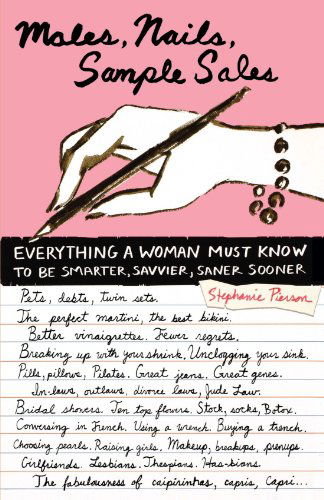 Males, Nails,
Sample Sales
EVERYTHING A WOMAN MUST KNOW
TO BE SMARTER, SAVVIER, SANER SOONER
Stephanie Pierson
Pets, debts, twin sets.
The perfect martini, the best bikini.
Better vinaigrettes. Fewer regrets.
Breaking up with your shrink, Unclogging your sink.
Pills, pillows, Pilates. Great jeans. Great genes.
In-laws, outlaws, divorce laws, Jude Law.
Bridal showers. Ten top flowers. Stock, socks, Botox.
Conversing in French. Using a wrench. Buying a trench.
Choosing pearls. Raising girls. Makeup, breakups, prenups.
Girlfriends. Lesbians. Thespians. Has-biens.
The fabulousness of caipirinhas, capris, Capri...